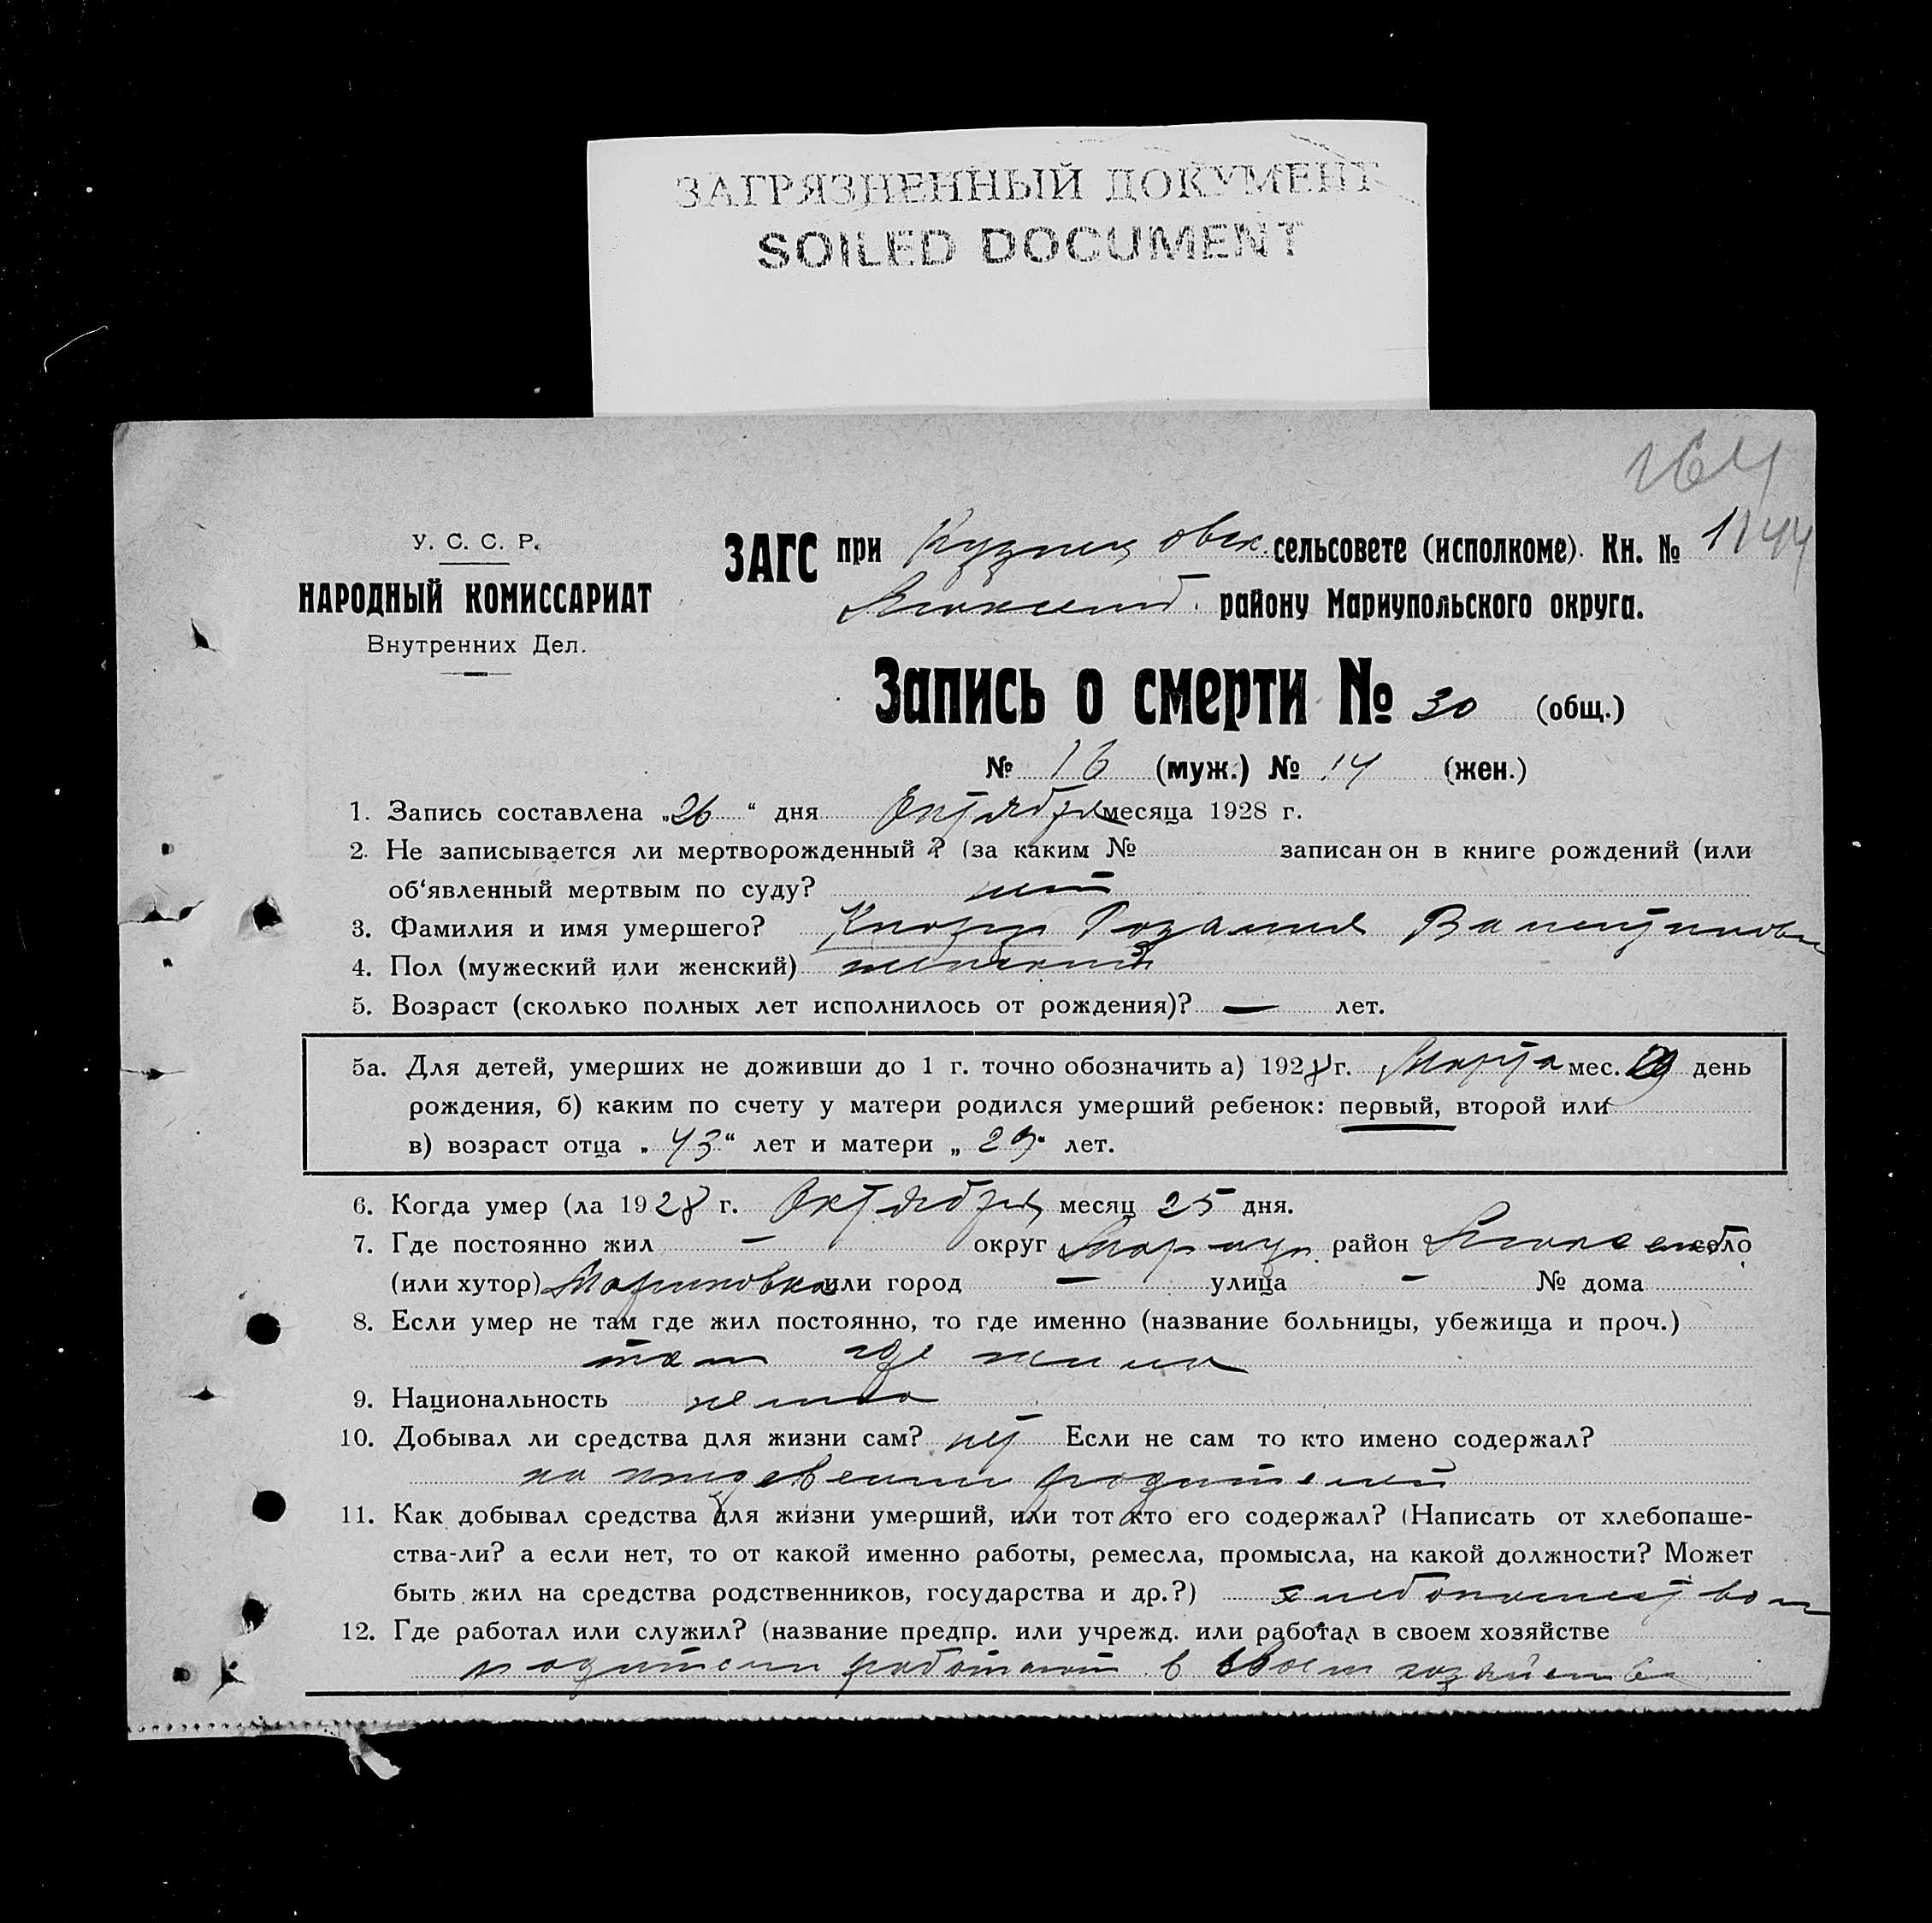 ЗАГРЯЗНЕННЫЙ ДОКУМЕНТ
SOILED DOCUMENT
164
У. С. С. Р.
НАРОДНЫЙ КОМИССАРИАТ
Внутренних Дел.
ЗАГС при Кузнецовск. сельсовете (исполкоме). Кн. № 1144
району Мариупольского округа.
Запись о смерти № 30 (общ.)
№ 16 (муж.) № 14 (жен.)
1. Запись составлена „26 “ дня Октября месяца 1928 г.
2. Не записывается ли мертворожденный ? (за каким № записан он в книге рождений (или
об‘явленный мертвым по суду? нет
3. Фамилия и имя умершего? Розалия Валентиновн
4. Пол (мужеский или женский) женский
5. Возраст (сколько полных лет исполнилось от рождения)? — лет.
5а. Для детей, умерших не доживши до 1 г. точно обозначить а) 1928 г. Марта мес. день
рождения, б) каким по счету у матери родился умерший ребенок: первый, второй или
в) возраст отца „ 43 “ лет и матери „ 29 “ лет.
6. Когда умер (ла 1928 г. Октября месяц 25 дня.
7. Где постоянно жил — округ Мариуп. район село
(или хутор) Мариновка или город — улица — № дома
8. Если умер не там где жил постоянно, то где именно (название больницы, убежища и проч.)
там где жила
9. Национальность немка
10. Добывал ли средства для жизни сам? нет Если не сам то кто имено содержал?
на иждевении родителей
11. Как добывал средства для жизни умерший, или тот кто его содержал? (Написать от хлебопаше-
ства-ли? а если нет, то от какой именно работы, ремесла, промысла, на какой должности? Может
быть жил на средства родственников, государства и др.?) хлебопашеством
12. Где работал или служил? (название предпр. или учрежд. или работал в своем хозяйстве
родители работают в своем хозяйстве